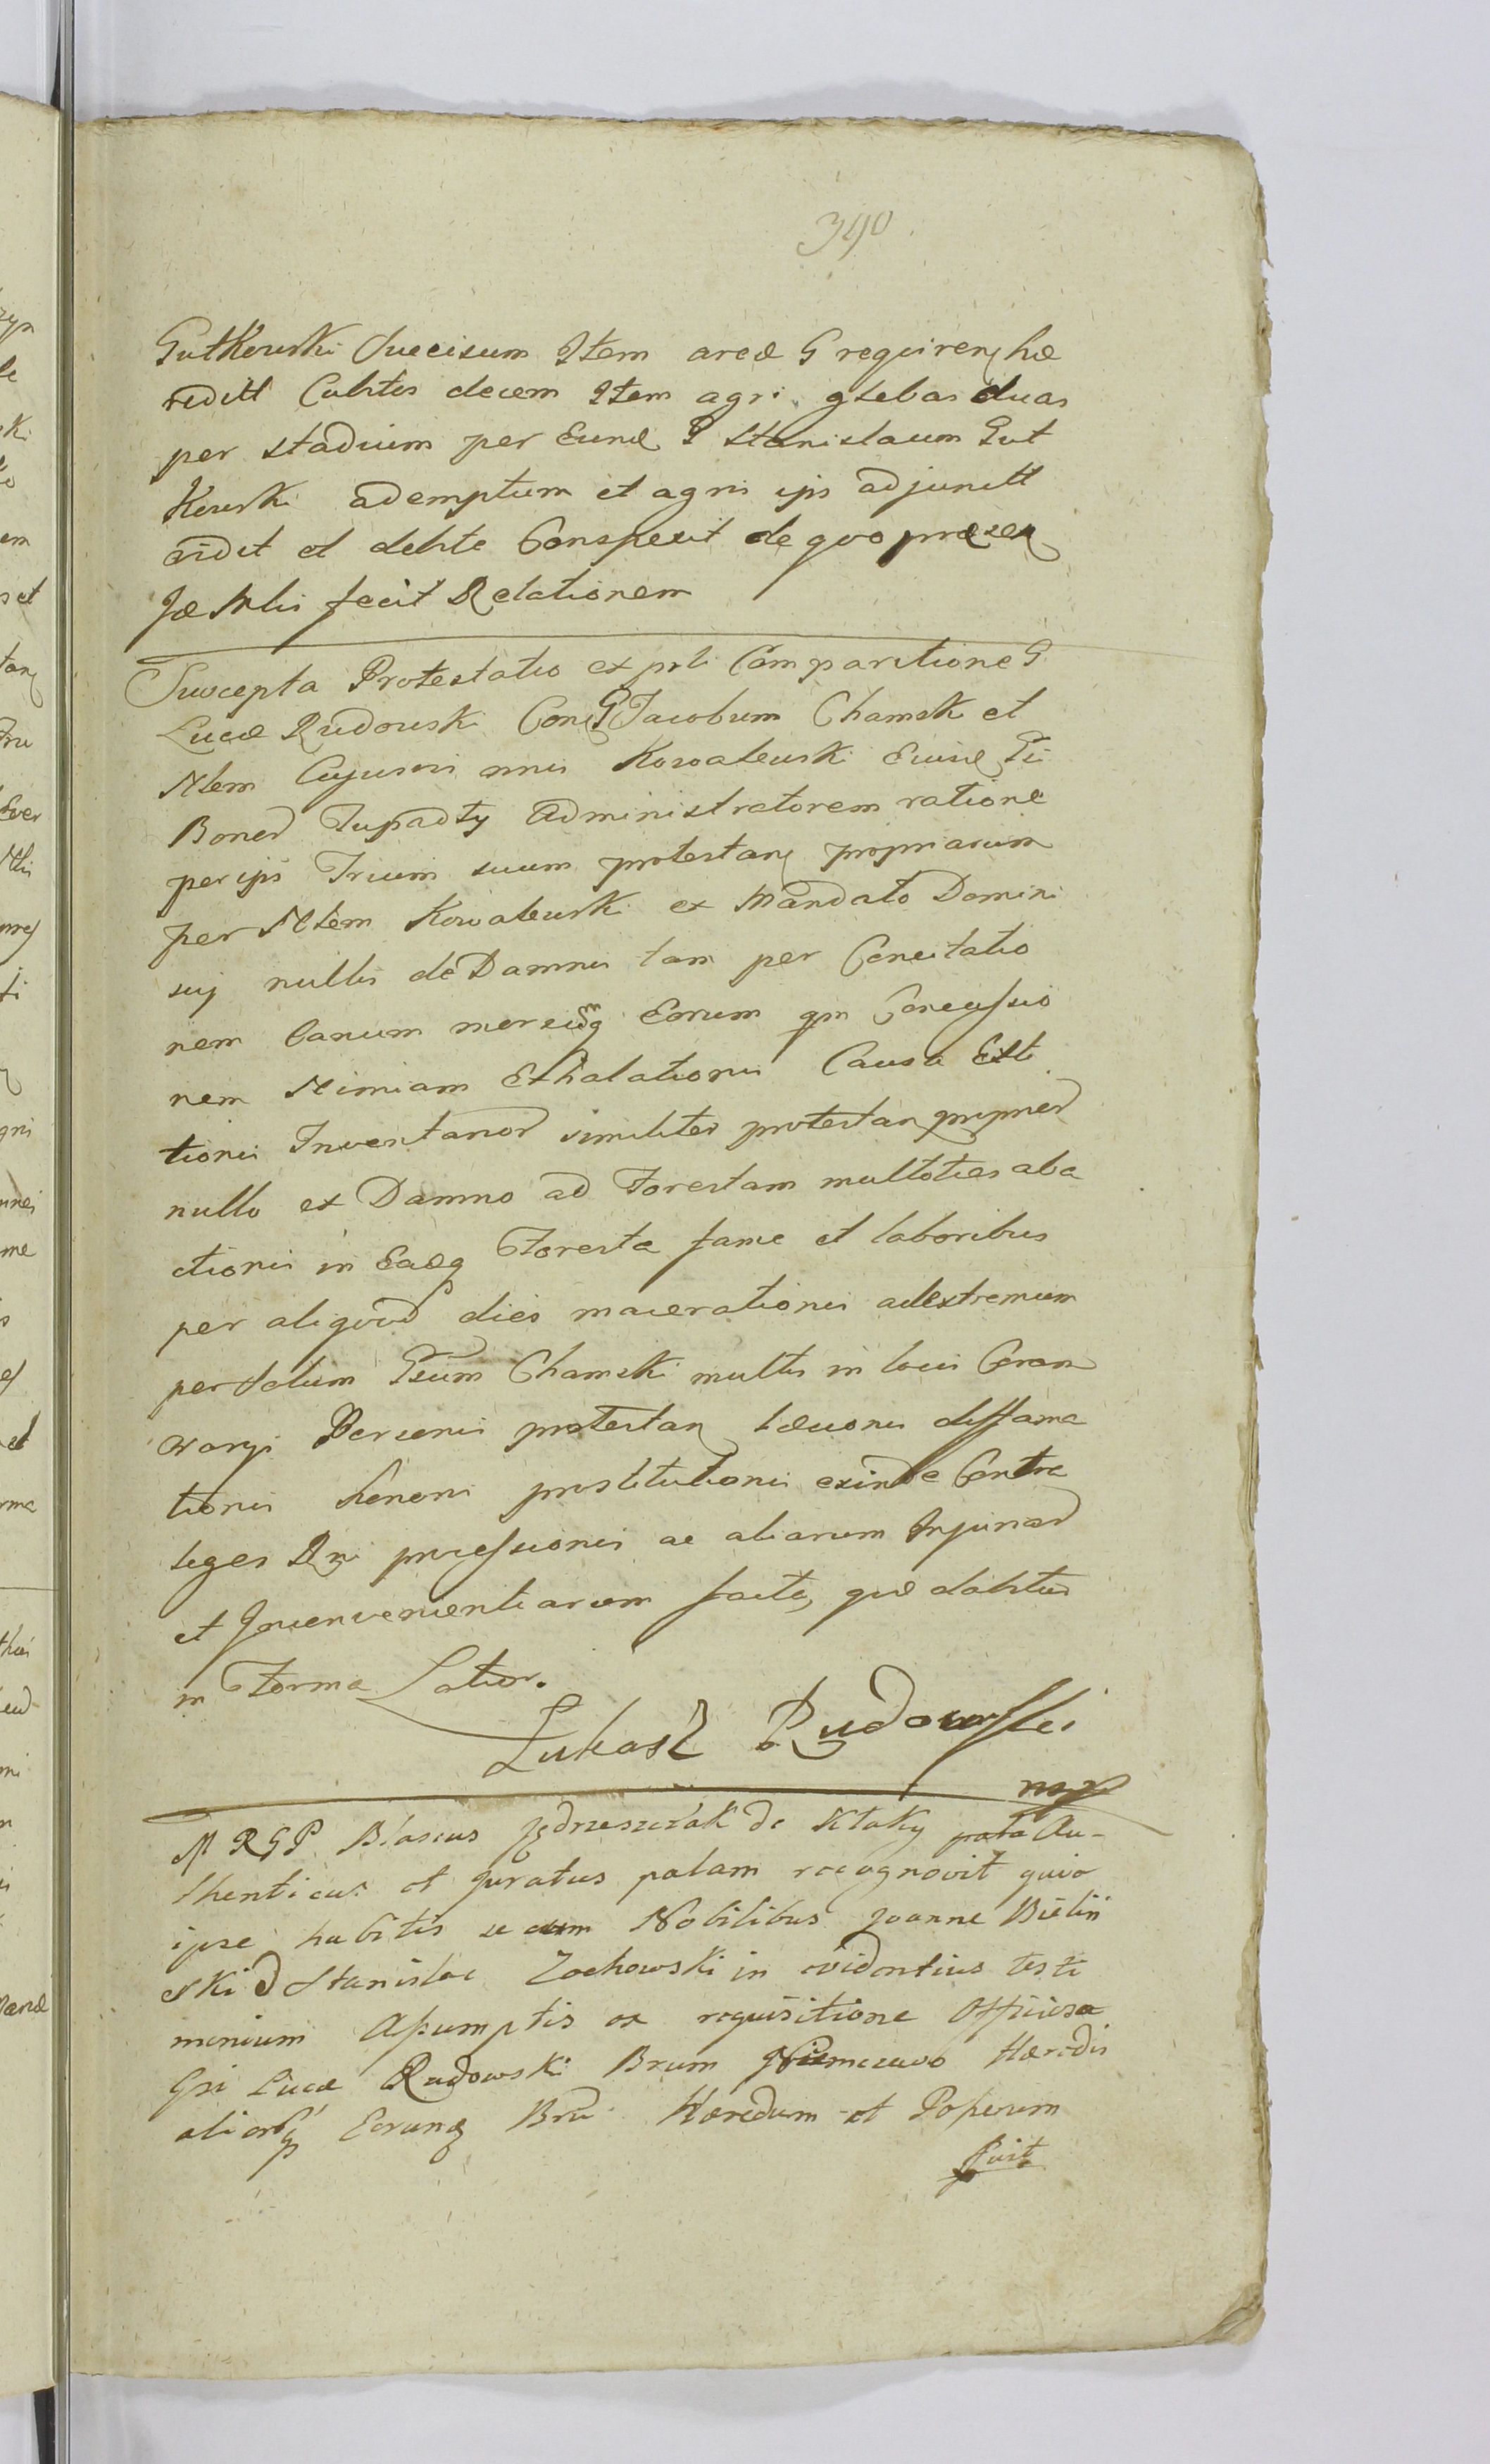 340
Gutkowski Succisum Item areæ G requiren hæ
reditt Cubitos decem Item agri glebas duas
per stadium per Eund G Stanislaum Gut
Kowski ademptum et agris ejus adjunctt
vidit et debite Conspexit de quo præsen
Jæ Mlis fecit Relationem
Suscepta Protestatio ex prli Comparitione G
Lucæ Rudowski Con G Jacobum Chamski et
Nlem Cujusvis nnis Kowalewski Eiusd Gi
Bonor Tupadły Administratorem ratione
per ips Trium suum protestan propriarum
per Nlem Kowalewski ex Mandato Domini
sui nullis de Damnis tam per Concitatio
nem Canum Eorum qm Concussio
nem Nimiam Exhalationis Causa Exti
tionis Inventarior similiter protestan proprior
nullo ex Damno ad Forestam multoties aba
ctionis in Eadq Foresta fame et laboribus
per aliquod dies macerationis ad extremum
per Solum Gsum Chamski multis in locis Coram
varys Personis protestan Læsionis diffama
tionis honoris prostitutionis exinde Contra
leges Rni processionis ac aliarum Injuriar
et Inconvenientiarum facta, quæ dabitur
in Forma Latior.
Łukasz Rudowski
mp
M R G P Blasius Jędrzeszczak de Kłaky Au-
thenticus et Juratus palam recognovit quia
ipse habitis secum Nobilibus Joanne Bieliń
ski & Stanislao Zochowski in evidentius testi
monium Assumptis ex requisitione Officiosa
Gsi Lucæ Rudowski Brum Niemczewo Hæredis
aliorq Eorunq Brū Hæredum et Possessorum
fuit